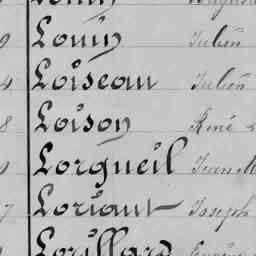 9 Louin Julien
4 Loiseau Julien
8 Loison René
Lorgueil Jean M
7 Loriant Joseph
Lorillard